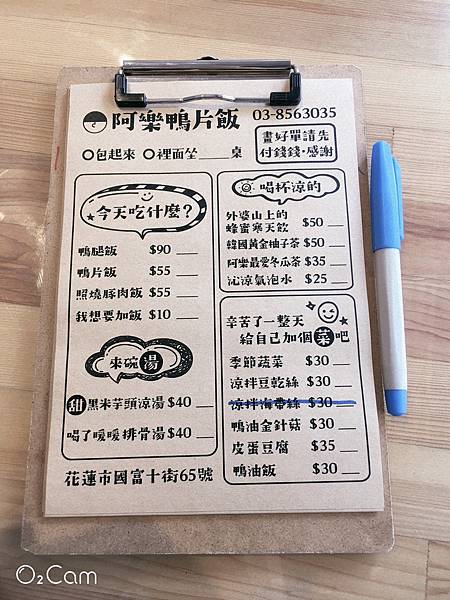 阿樂鴨片飯
03-8563035
畫好單請先
付錢錢·感謝
包起來 裡面坐____桌
今天吃什麼?
鴨腿飯 $90 __
鴨片飯 $55 __
照燒豚肉飯 $55 __
我想要加飯 $10 __
來碗湯
甜 黑米芋頭涼湯 $40 __
喝了暖暖排骨湯 $40 __
花蓮市國富十街65號
喝杯涼的
外婆山上的
蜂蜜寒天飲 $50 __
韓國黃金柚子茶 $50 __
阿樂最愛冬瓜茶 $35 __
沁涼氣泡水 $25 __
辛苦了一整天
給自己加個菜吧
季節蔬菜 $30 __
涼拌豆乾絲 $30 __
涼拌海帶絲 $30 __
鴨油金針菇 $30 __
皮蛋豆腐 $35 __
鴨油飯 $30 __
O2Cam